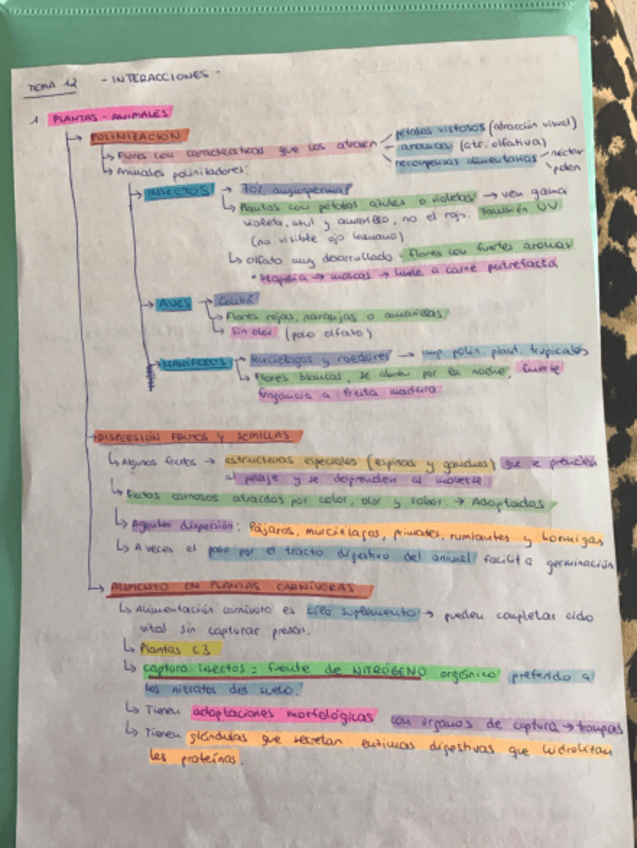 TEMA 12 - INTERACCIONES -
1 PLANTAS - ANIMALES
→ POLINIZACIÓN
↳ Flores con características que los atraen
pétalos vistosos (atracción visual)
aromas (atr. olfativa)
recompensas alimentarias
néctar
polen
↳ Animales polinizadores:
→ INSECTOS → 70% angiospermas
↳ Plantas con pétalos azules o violetas → ven gama
violeta, azul y amarillo, no el rojo. También UV
(no visible ojo humano)
↳ Olfato muy desarrollado: flores con fuertes aromas
* Stapelia → moscas → huele a carne putrefacta
→ AVES → Colibrí
↳ Flores rojas, naranjas o amarillas.
↳ Sin olor (poco olfato)
→ MAMÍFEROS → Murciélagos y roedores → imp. polin. plant. tropicales
↳ Flores blancas, se abren por la noche, fuerte
fragancia a fruta madura.
→ DISPERSIÓN FRUTOS Y SEMILLAS
↳ Algunos frutos → estructuras especiales (espinas y ganchos) que se prenden
al pelaje y se desprenden al moverse.
↳ Frutos carnosos atraídos por color, olor y sabor. → Adaptados
↳ Agentes dispersión: Pájaros, murciélagos, primates, rumiantes y hormigas
↳ A veces el paso por el tracto digestivo del animal facilita germinación
→ ALIMENTO EN PLANTAS CARNÍVORAS
↳ Alimentación carnívora es sólo suplemento → pueden completar ciclo
vital sin capturar presas.
↳ Plantas C3
↳ captura insectos = fuente de NITRÓGENO orgánico preferido a
los nitratos del suelo.
↳ Tienen adaptaciones morfológicas con órganos de captura → trampas
↳ Tienen glándulas que secretan enzimas digestivas que hidrolizan
las proteínas.